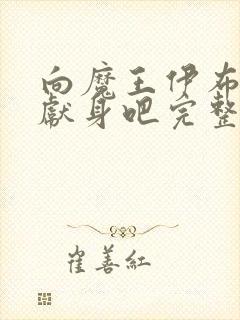 向魔王伊布
献身吧完整
崔善红